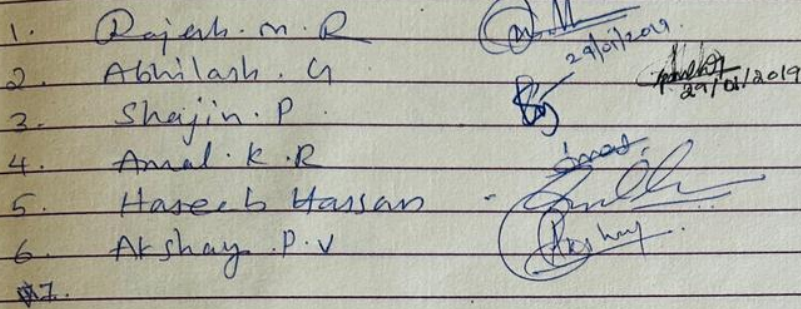 1. Rajesh. M. R
29/01/2019.
2. Abhilash. G
29/01/2019
3. Shajin. P
4. Amal. K. R Amal
5. Haseeb Hassan
6. Akshay. P. V Akshay
7.